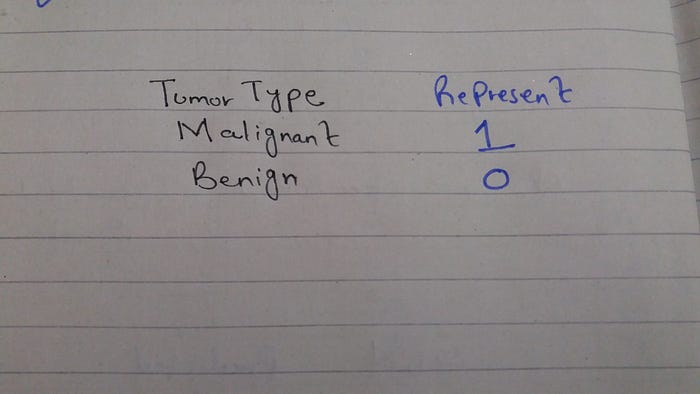 Tumor Type Represent
Malignant 1
Benign 0